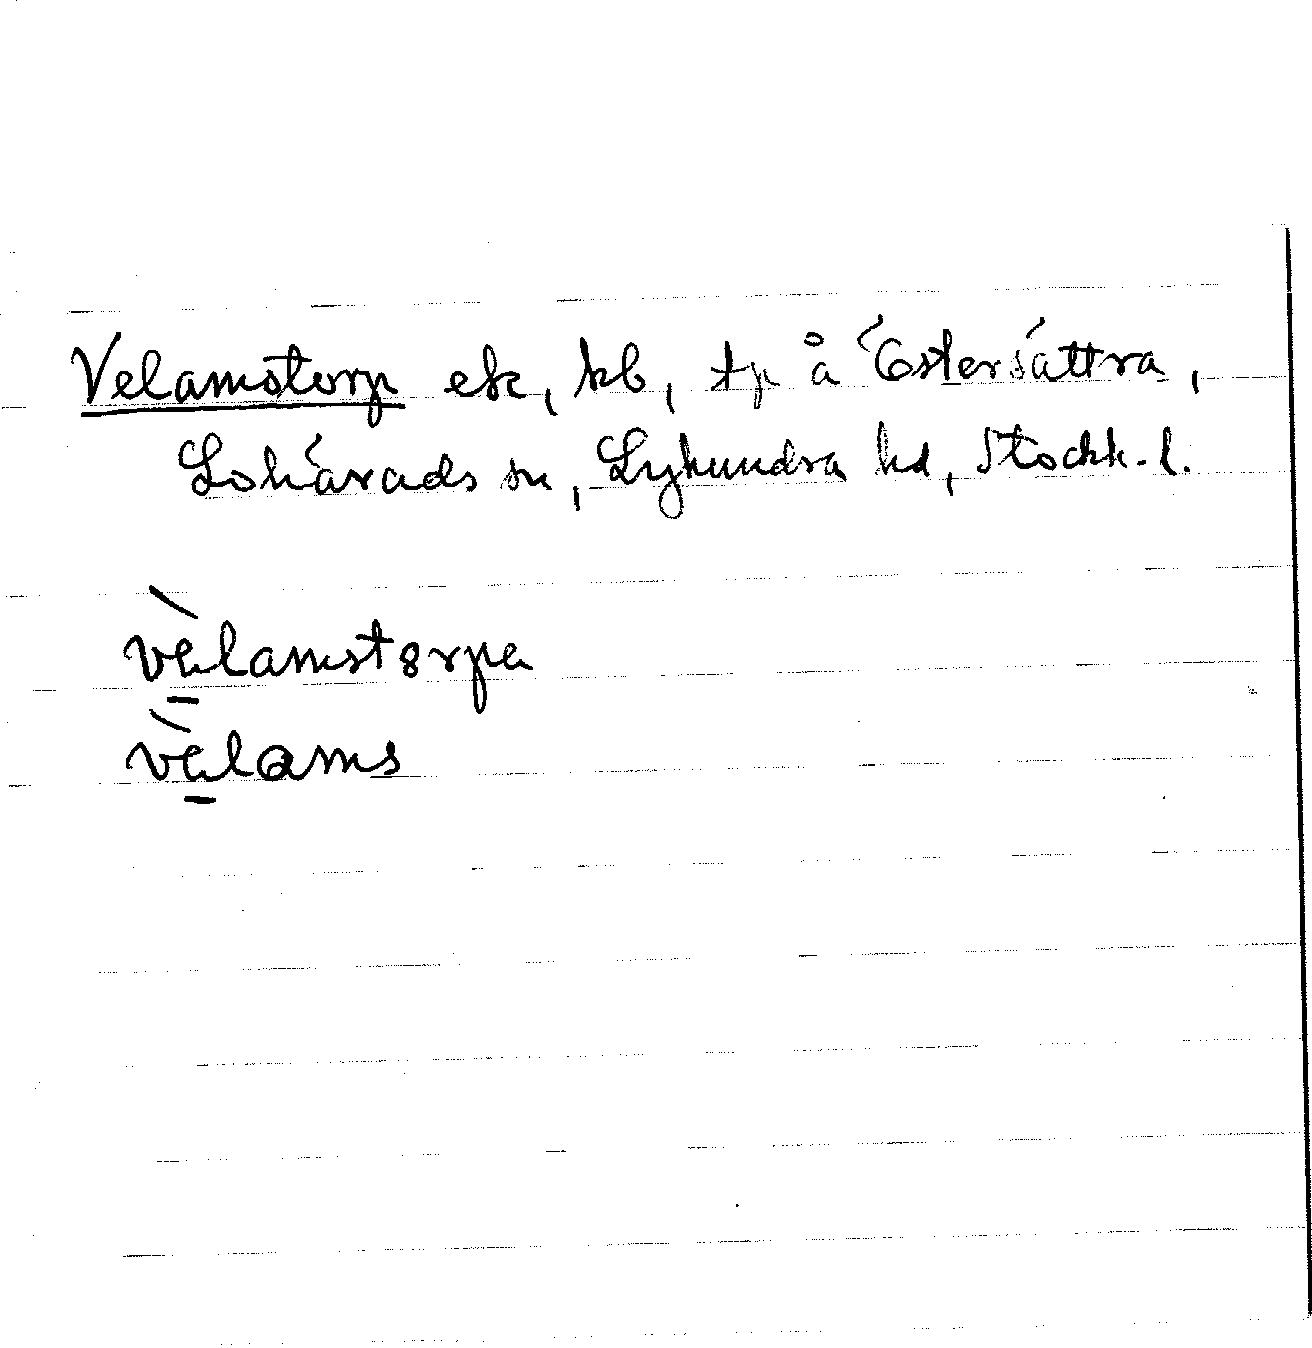 Velamstorp ek, kb, tp å Östersättra,
Lohärads sn, Lyhundra hd, Stockh. l.
vèlamstorpa
vèlams